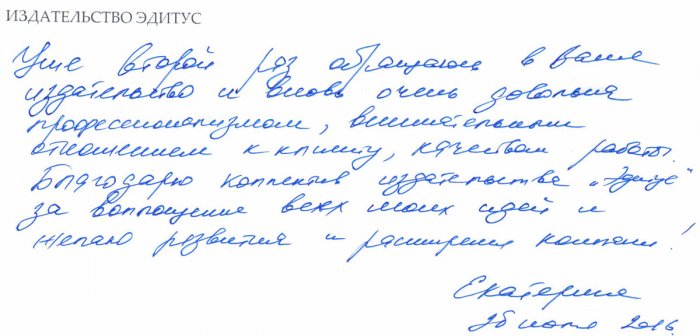 ИЗДАТЕЛЬСТВО ЭДИТУС
Уже второй раз обращаюсь в ваше
издательство и вновь очень довольна
профессионализмом, внимательным
отношением к клиенту, качеством работы.
Благодарю коллектив издательства „Эдитус"
за воплощение всех моих идей и
желаю развития и расширения компании!
Екатерина
26 2016